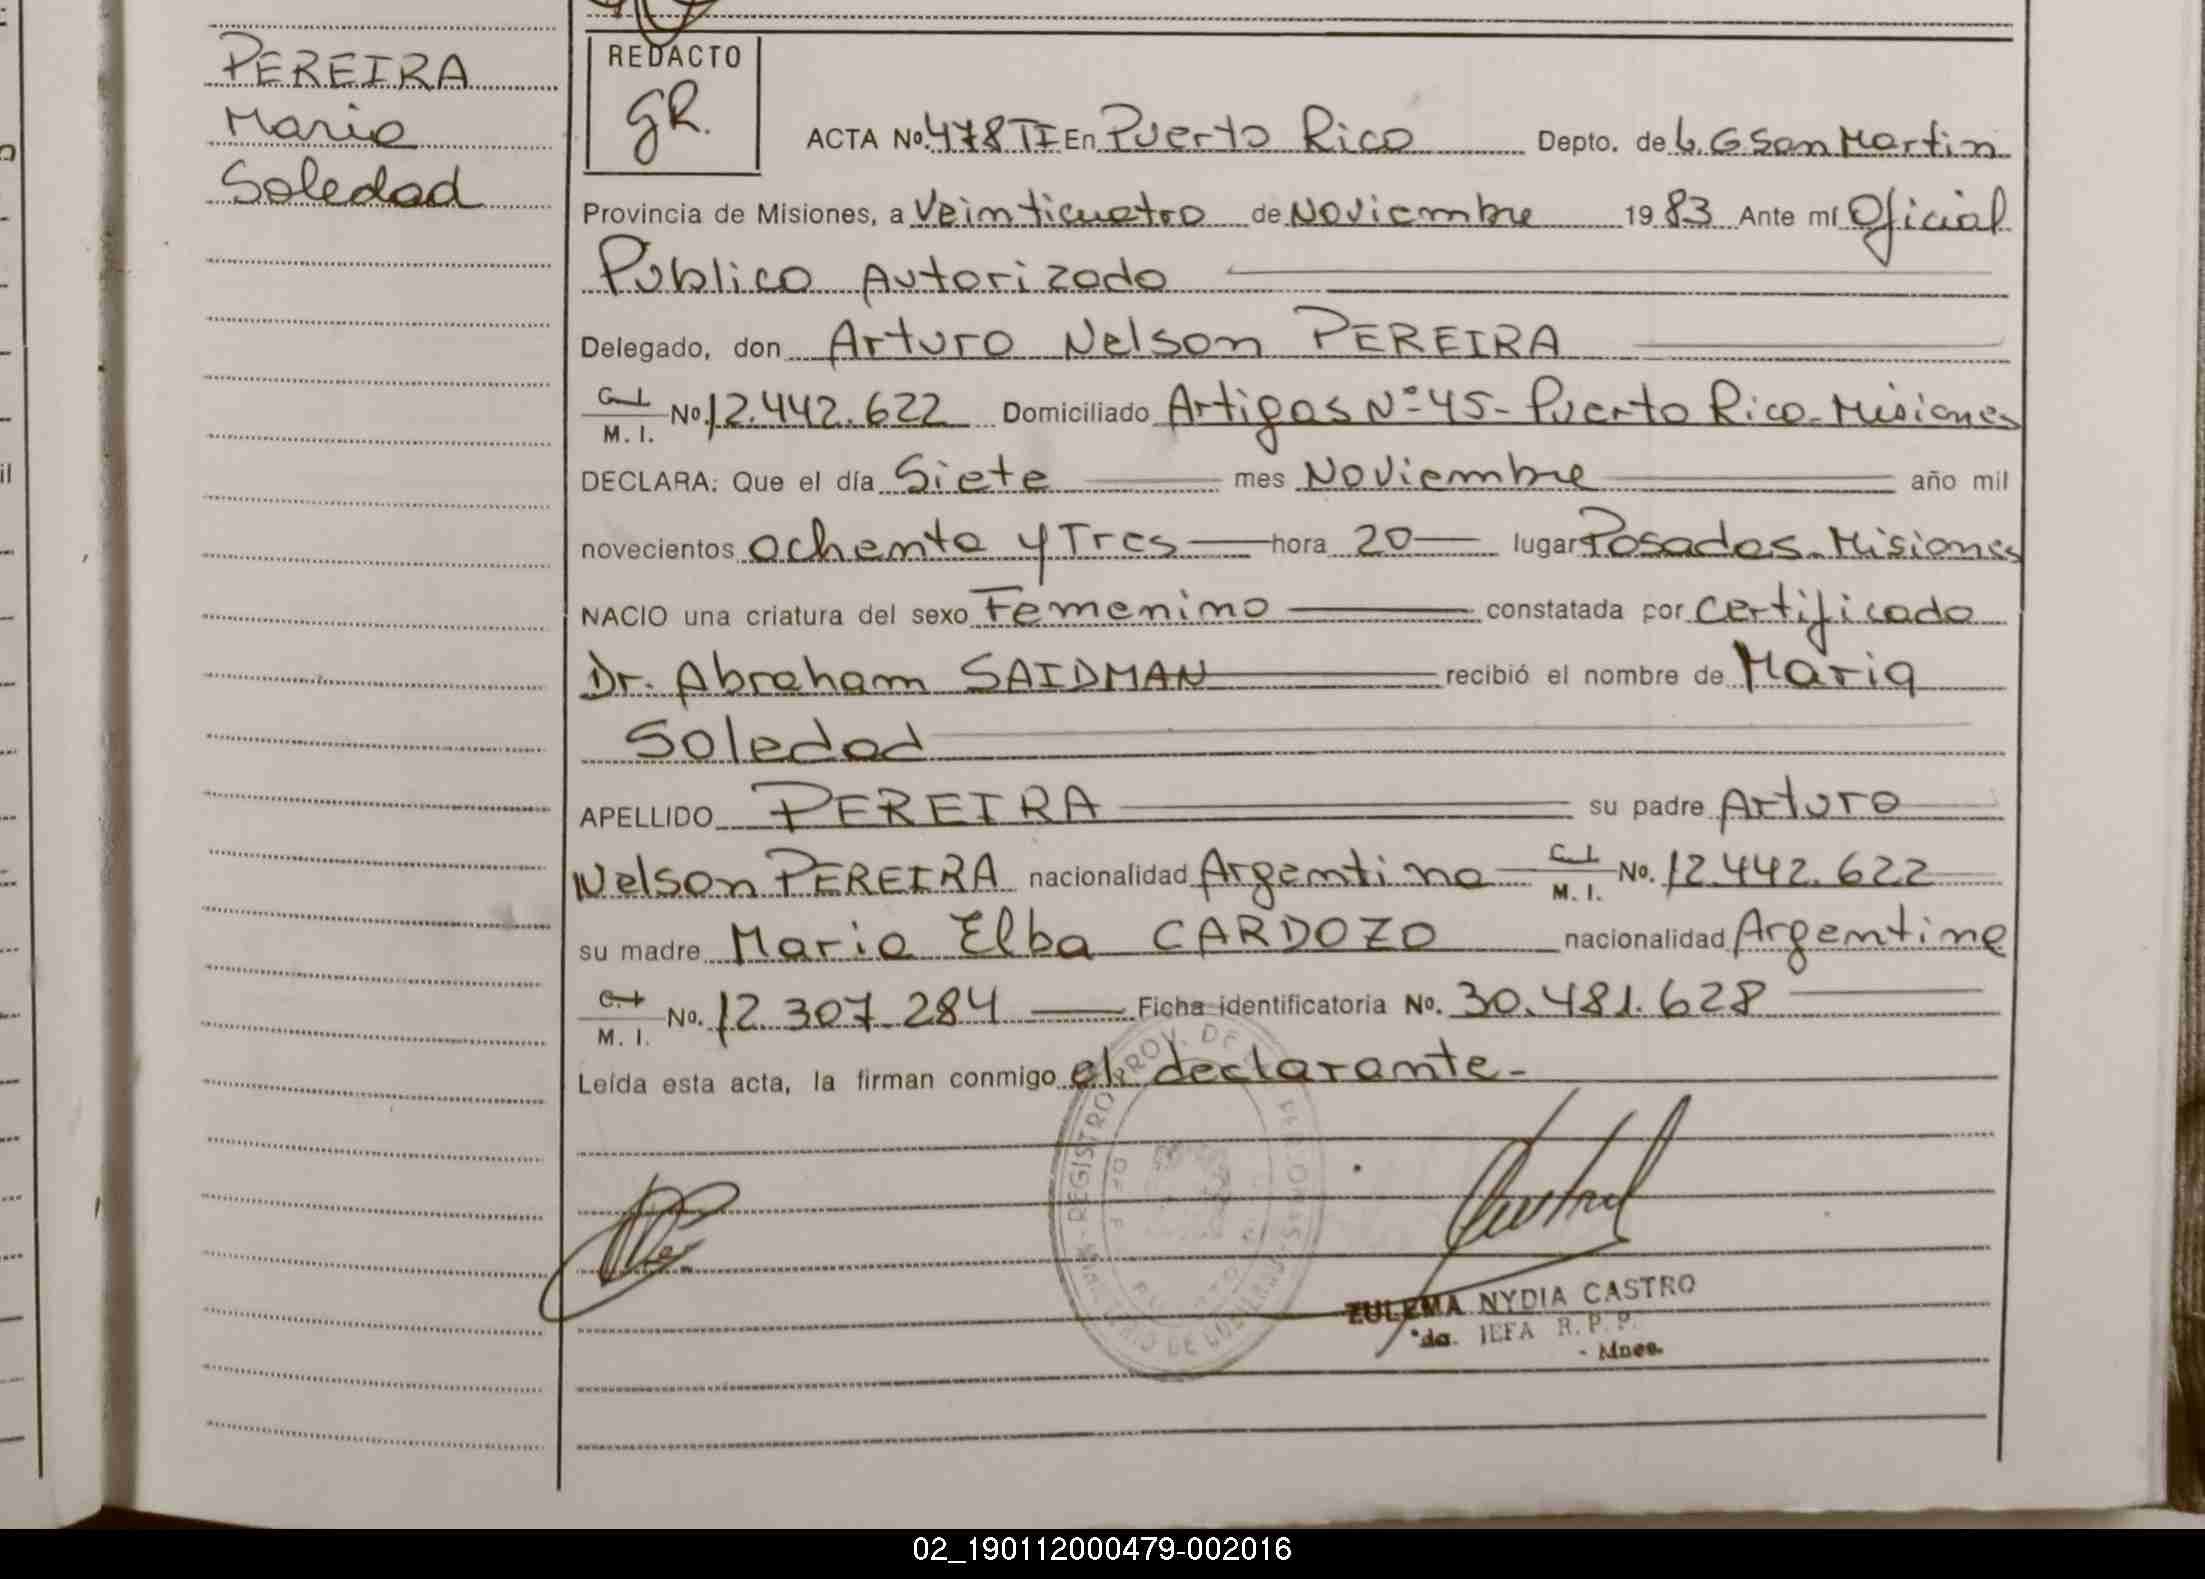 PEREIRA
Maria
Soledad
REDACTO
GR.
ACTA Nº. 478 TI En Puerto Rico Depto. de L. G San Martin
Provincia de Misiones, a Veinticuatro de Noviembre 19 83 Ante mí Oficial
Publico Autorizado
Delegado, don Arturo Nelson PEREIRA
C. I.
M. I. Nº. 12.442.622 Domiciliado Artigas Nº 45 - Puerto Rico - Misiones
DECLARA: Que el día Siete mes Noviembre año mil
novecientos ochenta y Tres hora 20 lugar Posadas - Misiones
NACIO una criatura del sexo Femenino constatada por Certificado
Dr. Abraham SAIDMAN recibió el nombre de Maria
Soledad
APELLIDO PEREIRA su padre Arturo
Nelson PEREIRA nacionalidad Argentina C. I.
M. I. Nº. 12.442.622
su madre Maria Elba CARDOZO nacionalidad Argentina
C. I.
M. I. Nº. 12.307.284 Ficha identificatoria Nº. 30.481.628
Leída esta acta, la firman conmigo el declarante.-
ZULEMA NYDIA CASTRO
da. JEFA R. P. P.
- Mnes.
02_190112000479-002016